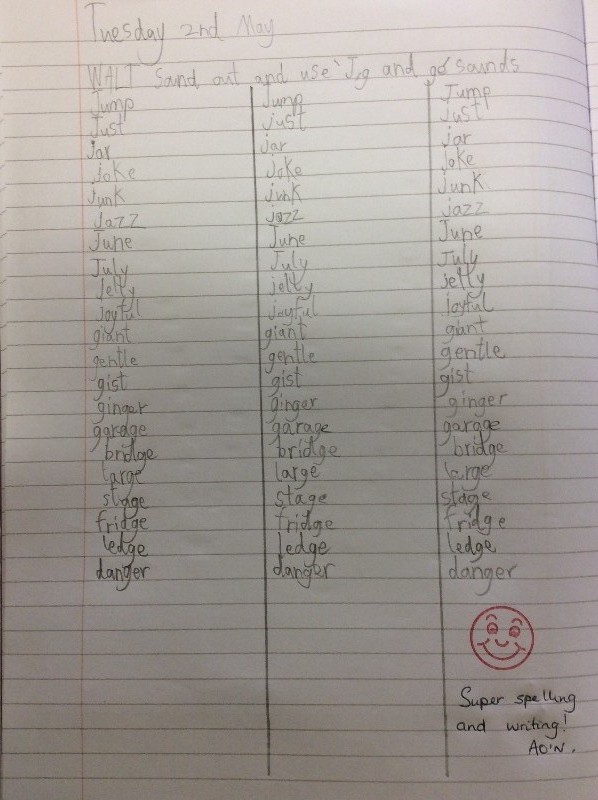 Tuesday 2nd May
WALT Sound out and use 'J,g and ge' sounds
Jump Jump Jump
Just just just
jar jar jar
joke joke joke
junk junk junk
jazz jazz jazz
June June June
July July July
jelly jelly jelly
joyful joyful joyful
giant giant giant
gentle gentle gentle
gist gist gist
ginger ginger ginger
garage garage garage
bridge bridge bridge
large large large
stage stage stage
fridge fridge fridge
ledge ledge ledge
danger danger danger
Super spelling
and writing!
AO'N.